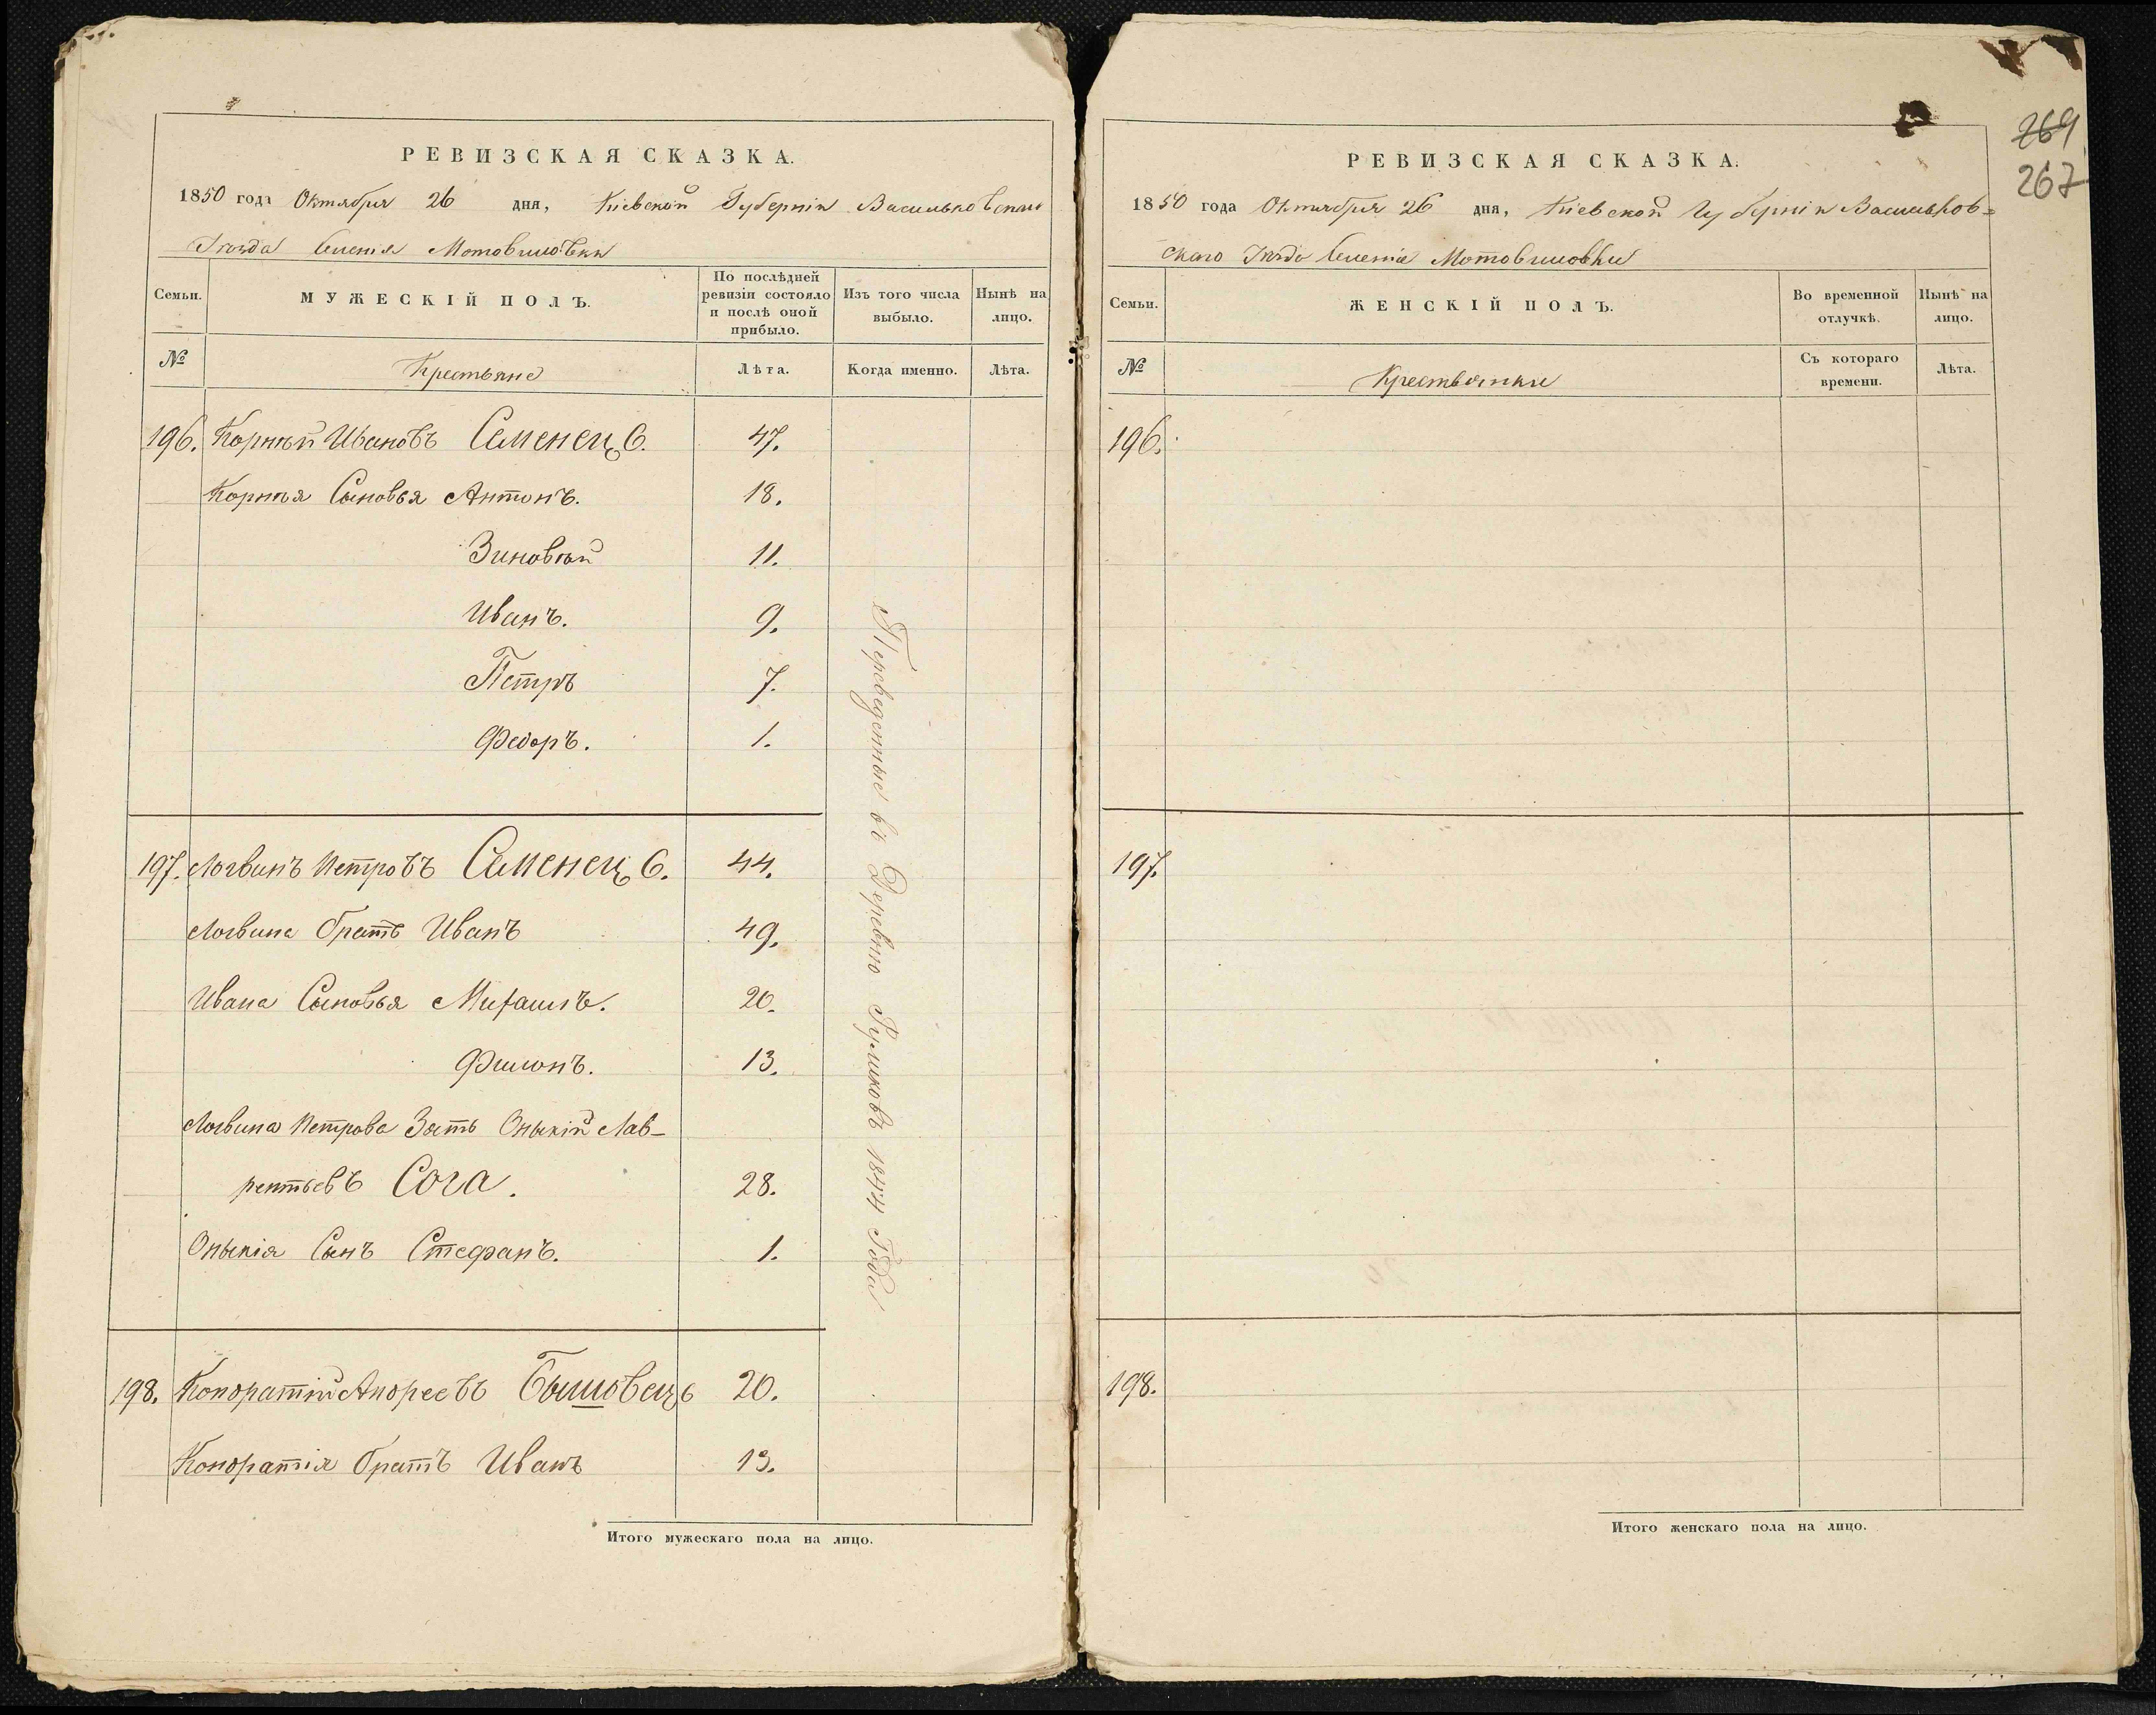 РЕВИЗСКАЯ СКАЗКА.
1850 года Октября 26 дня, Кіевской Губерніи Васильковскаго
Уѣзда Селенія Мотовиловки
Семьи.
МУЖЕСКІЙ ПОЛЪ.
По послѣдней
ревизіи состояло
и послѣ оной
прибыло.
Изъ того числа
выбыло.
Нынѣ на
лицо.
№
Крестьяне
Лѣта.
Когда именно.
Лѣта.
196. Корнѣй Ивановъ Семенецъ. 47.
Корнѣя Сыновья Антонъ. 18.
Зиновѣй 11.
Иванъ. 9.
Петръ 7.
Федоръ. 1.
197. Логвинъ Петровъ Семенецъ. 44.
Логвина братъ Иванъ 49.
Ивана Сыновья Михаилъ. 20.
Филонъ. 13.
Логвина Петрова Зять Оныкій Лав-
рентьевъ Сога. 28.
Оныкія Сынъ Стефанъ. 1.
198. Кондратій Андреевъ Бышовецъ 20.
Кондратія братъ Иванъ 13.
Переведенные въ Деревню 1844 Года
Итого мужескаго пола на лицо.
269
267
РЕВИЗСКАЯ СКАЗКА.
1850 года Октября 26 дня, Кіевской Губерніи Васильков=
скаго Уѣзда Селенія Мотовиловки
Семьи.
ЖЕНСКІЙ ПОЛЪ.
Во временной
отлучкѣ.
Нынѣ на
лицо.
№
Крестьянки
Съ котораго
времени.
Лѣта.
196.
197.
198.
Итого женскаго пола на лицо.